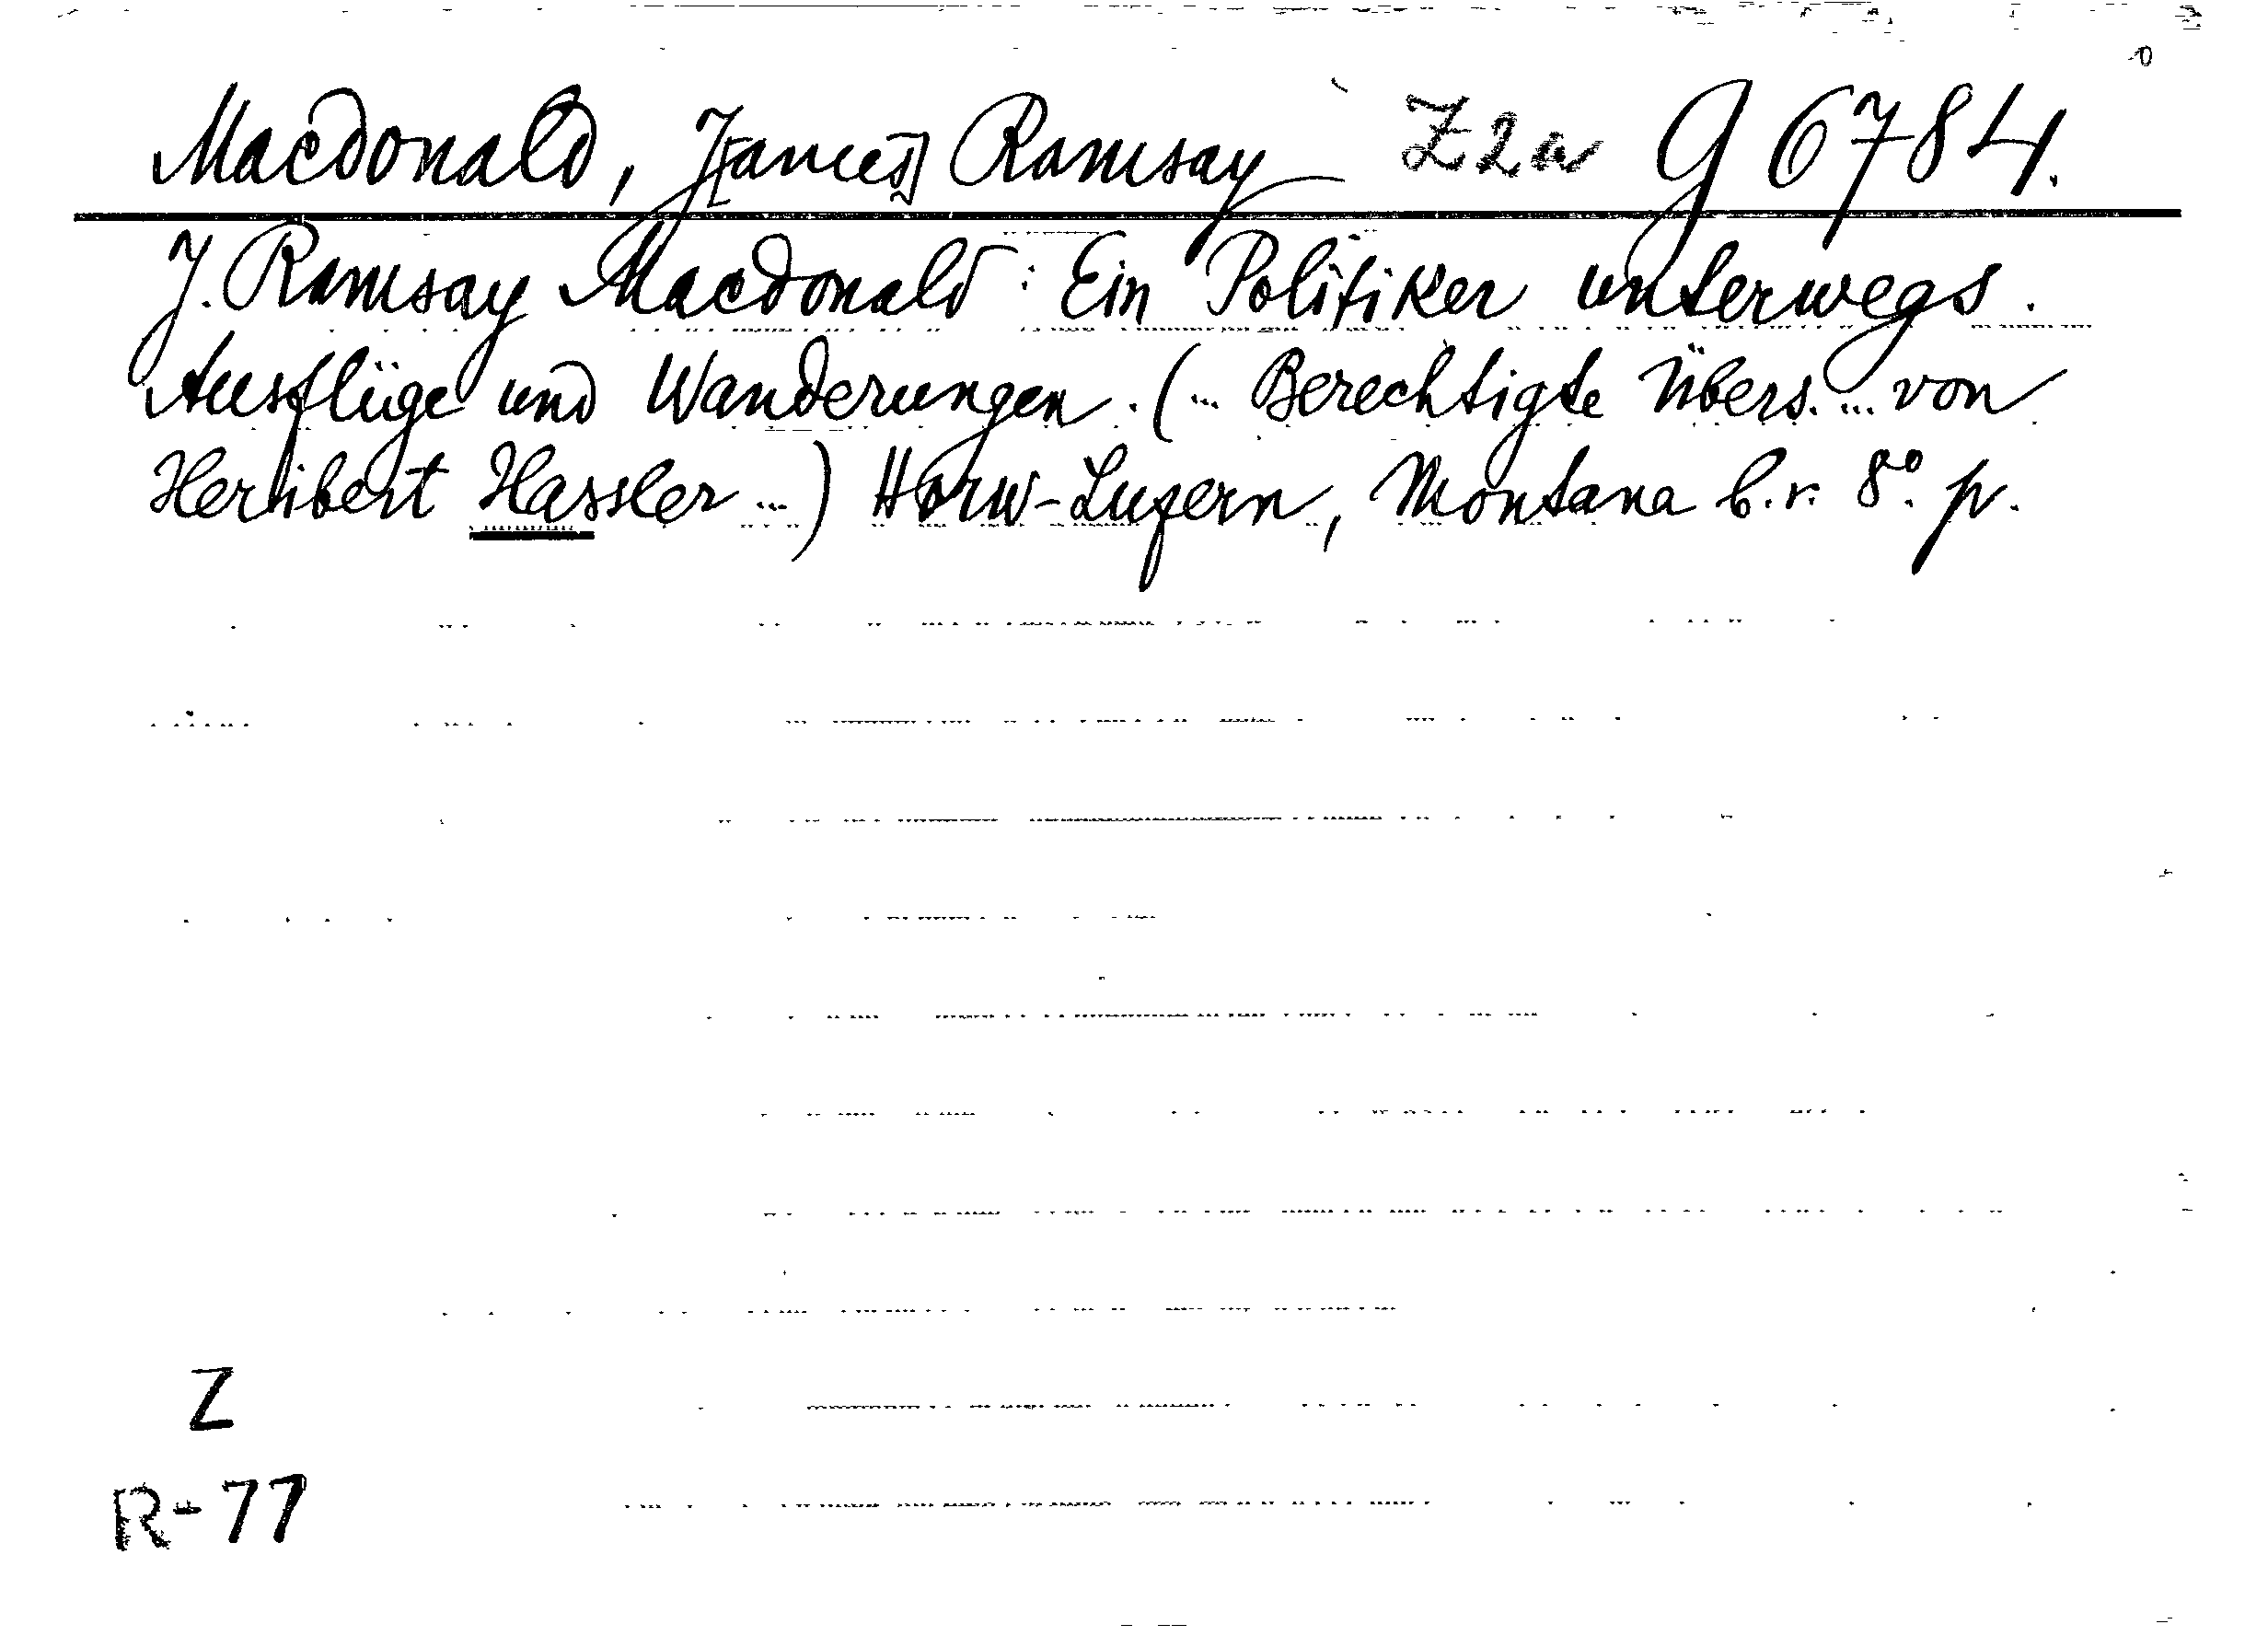 Macdonald, J[ames] Ramsay Z2a G 6784.
J. Ramsay Macdonald: Ein Politiker unterwegs.
Ausflüge und Wanderungen. (... Berechtigte Übers. ... von
Heribert Hassler ...) Horw-Luzern, Montana b. r. 8°. p.
Z
R-77